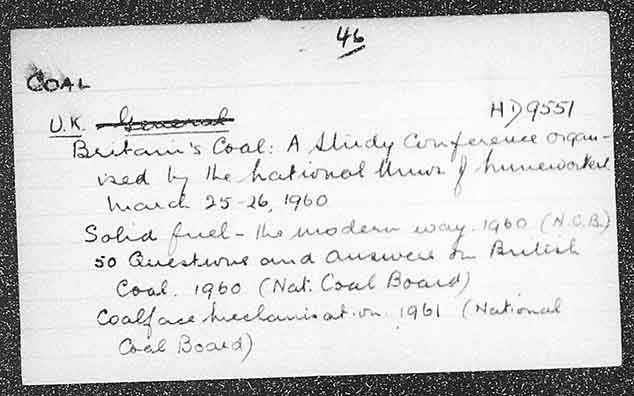 46
COAL
U.K. General HD9551
Britain's Coal: A Study Conference organ-
ised by the National Union of Mineworkers
March 25-26, 1960
Solid fuel - the modern way. 1960 (N.C.B.)
50 Questions and Answers on British
Coal. 1960 (Nat. Coal Board)
Coalface mechanisation. 1961 (National
Coal Board)